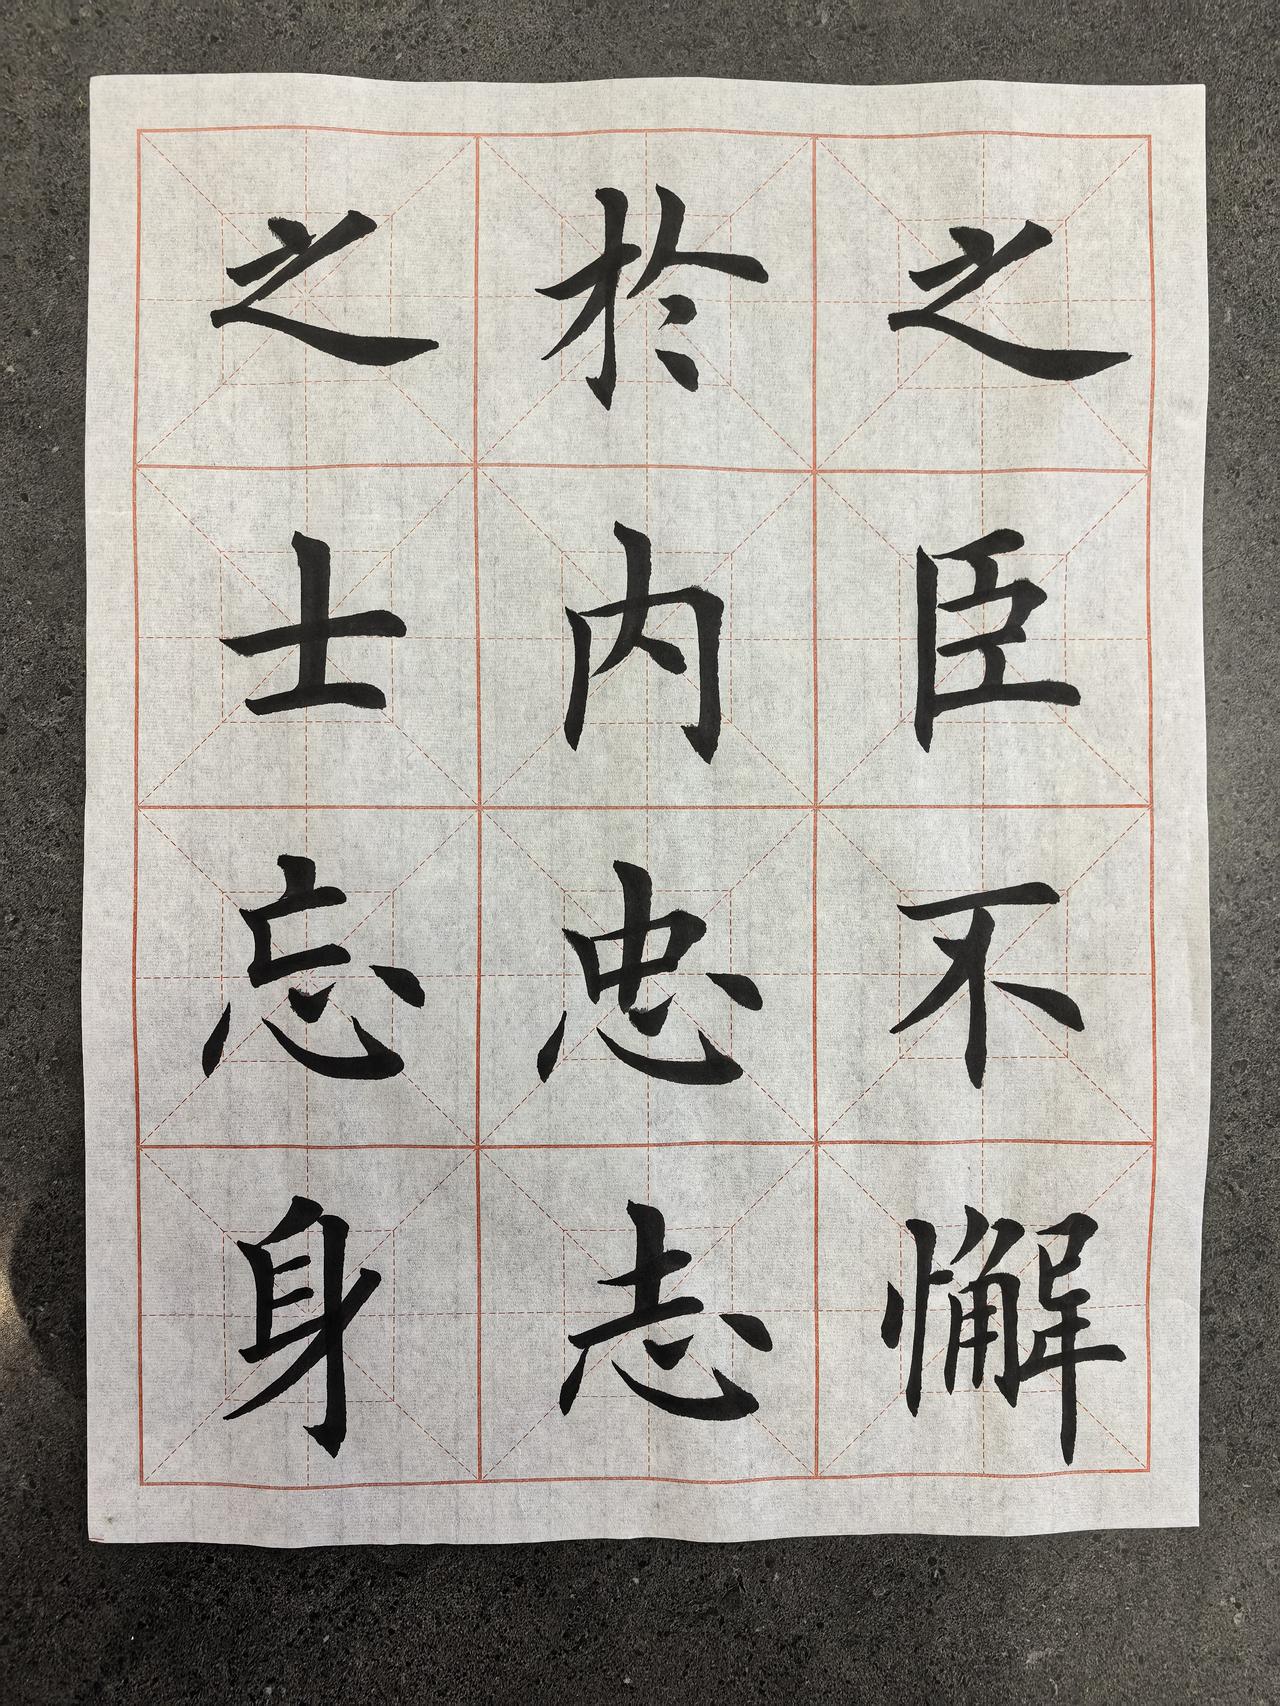 之臣不懈
於内忠志
之士忘身